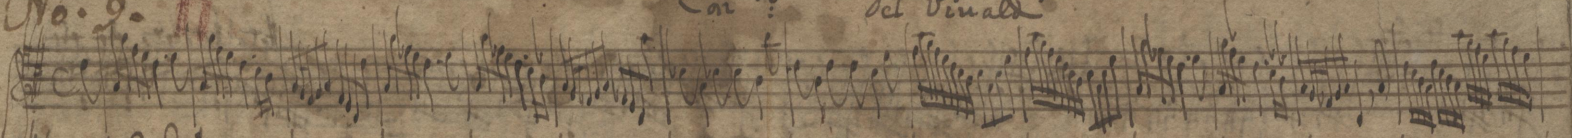 No. 9. Con: del Vivald